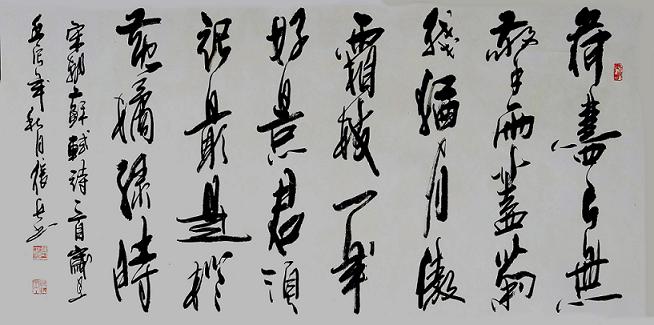 荷盡已無
擎雨蓋菊
殘猶有傲
霜枝一年
好景君須
記最是橙
黃橘綠時
宋朝蘇軾詩一首歲
年秋月張